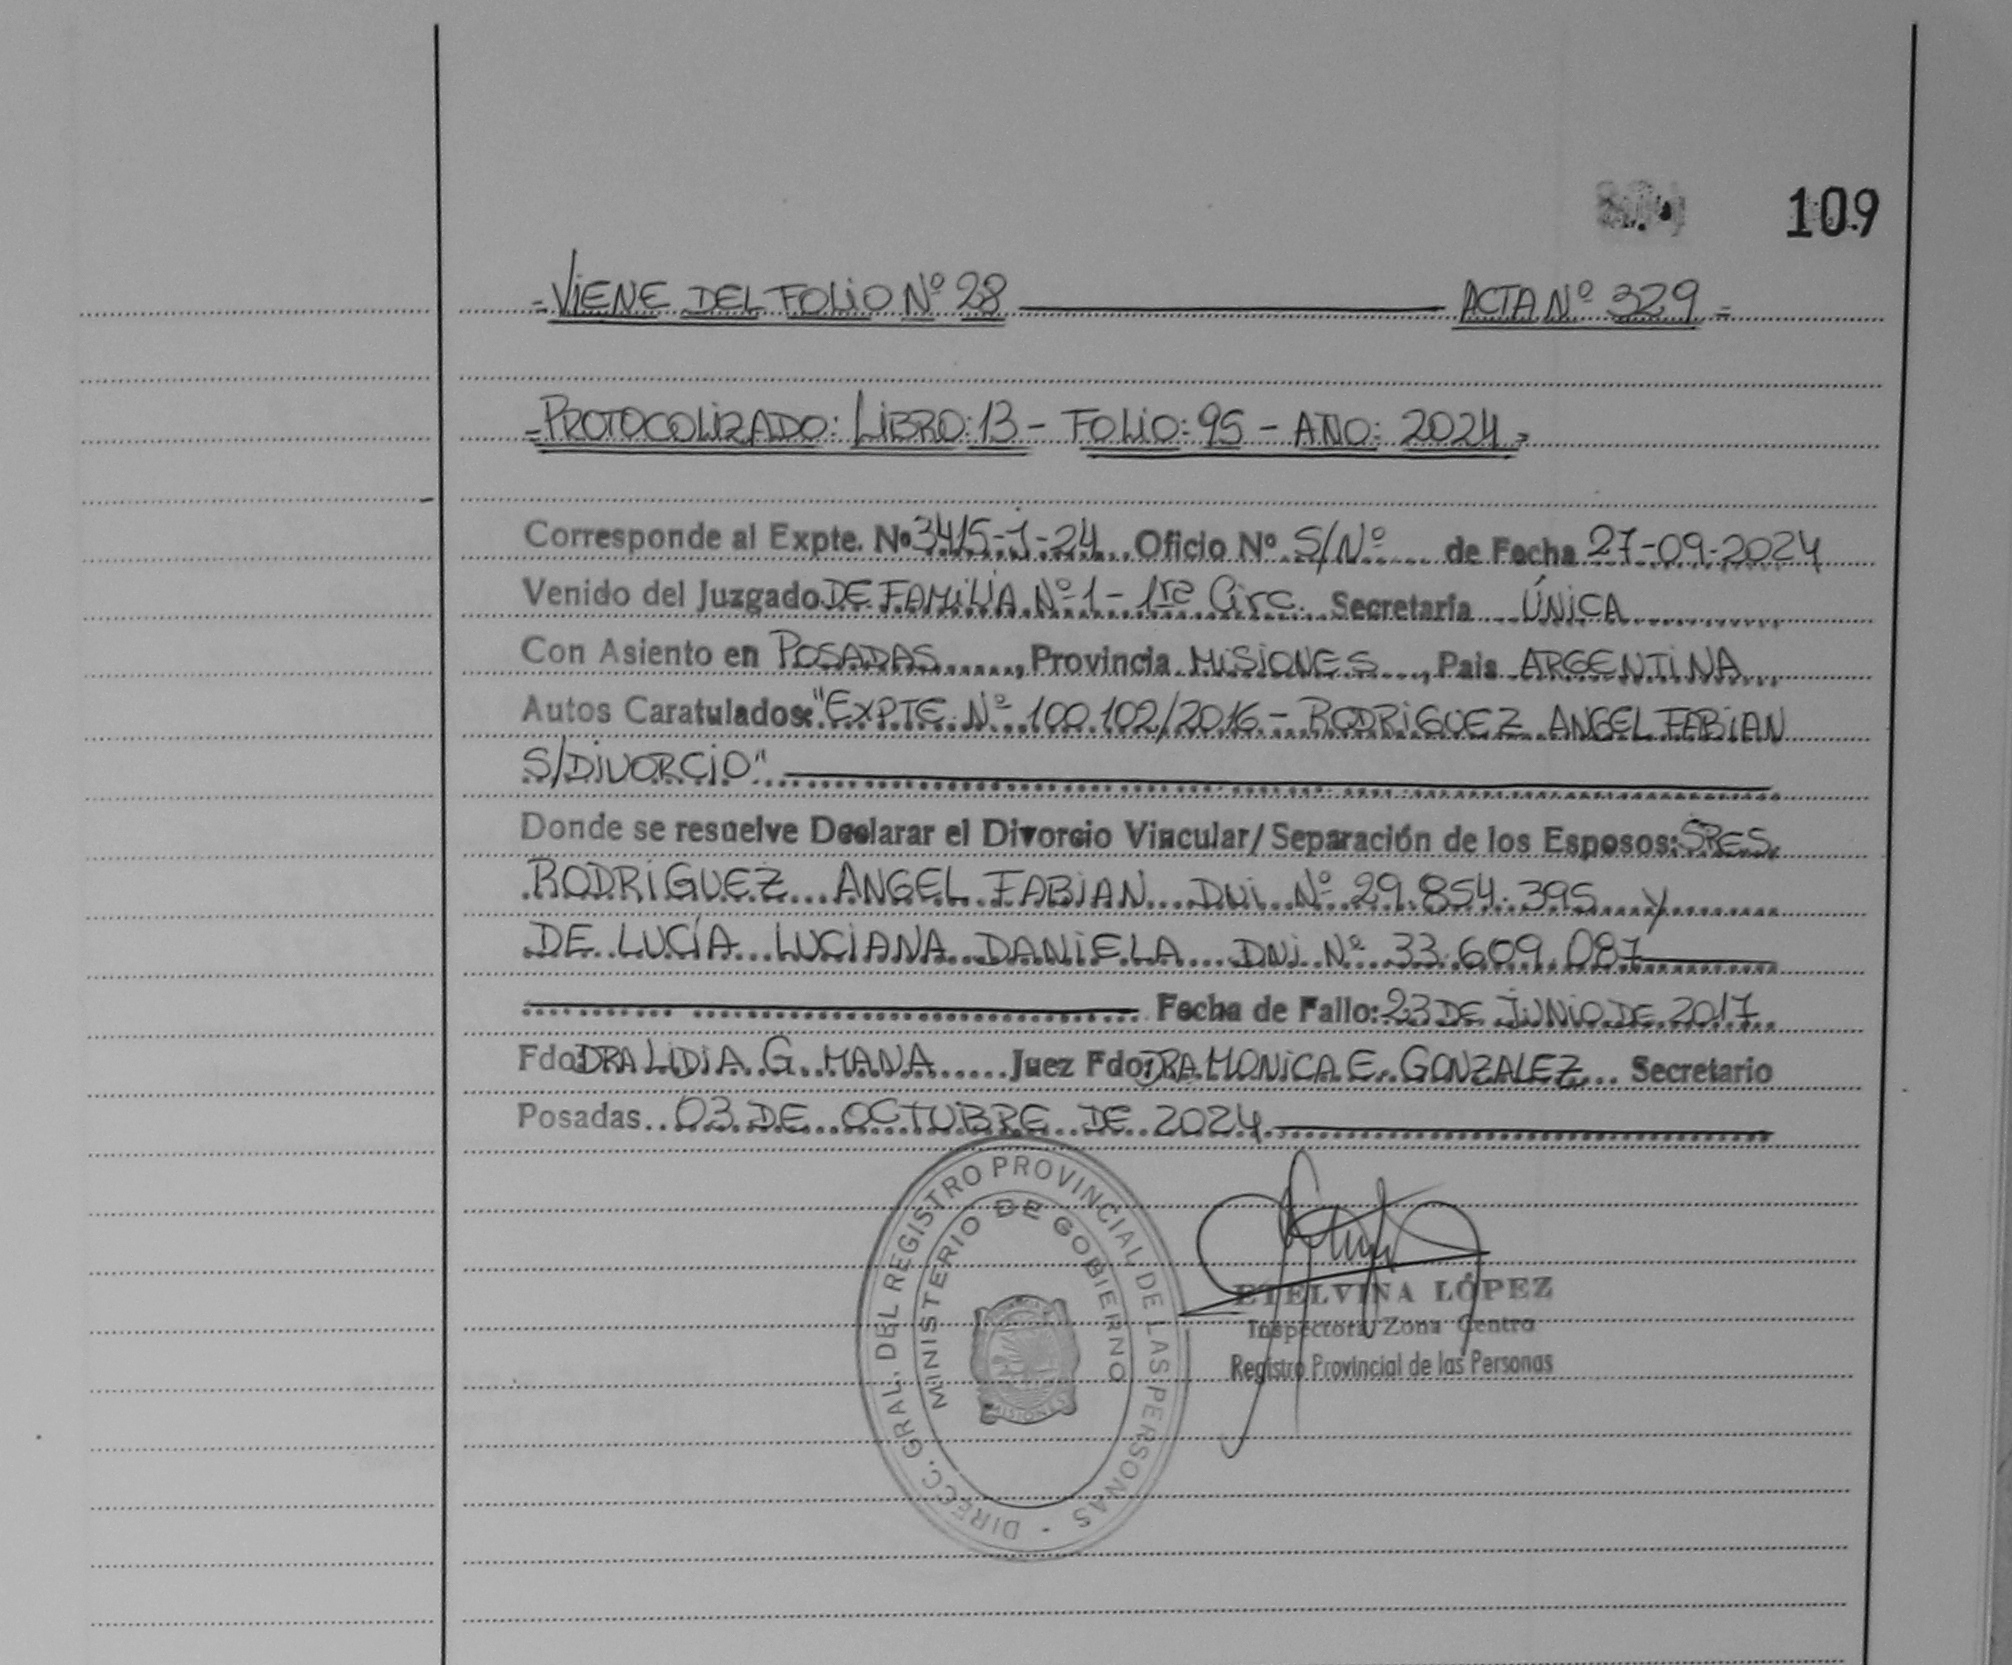 109
-VIENE DEL FOLIO Nº 28 ACTA Nº 329=
-PROTOCOLIZADO: LIBRO: 13 - FOLIO: 95 - AÑO: 2024=
Corresponde al Expte. Nº 3415-1-24 Oficio Nº S/Nº de Fecha 27-09-2024
Venido del Juzgado DE FAMILIA Nº 1 - 1ra Circ. Secretaría ÚNICA
Con Asiento en POSADAS, Provincia MISIONES, Pais ARGENTINA
Autos Caratulados: "EXPTE Nº 100.102/2016 - RODRIGUEZ ANGEL FABIAN
S/DIVORCIO"
Donde se resuelve Declarar el Divorcio Vincular/Separación de los Esposos: SRES.
RODRIGUEZ ANGEL FABIAN DNI Nº 29.854.395 y
DE LUCÍA LUCIANA DANIELA DNI Nº 33.609.087
Fecha de Fallo: 23 DE JUNIO DE 2017
Fdo: DRA LIDIA G. MANA Juez Fdo: DRA MONICA E. GONZALEZ Secretario
Posadas 03 DE OCTUBRE DE 2024
DIRECC. GRAL. DEL REGISTRO PROVINCIAL DE LAS PERSONAS -
MINISTERIO DE GOBIERNO
MISIONES
ETELVINA LÓPEZ
Inspectora Zona Centro
Registro Provincial de las Personas